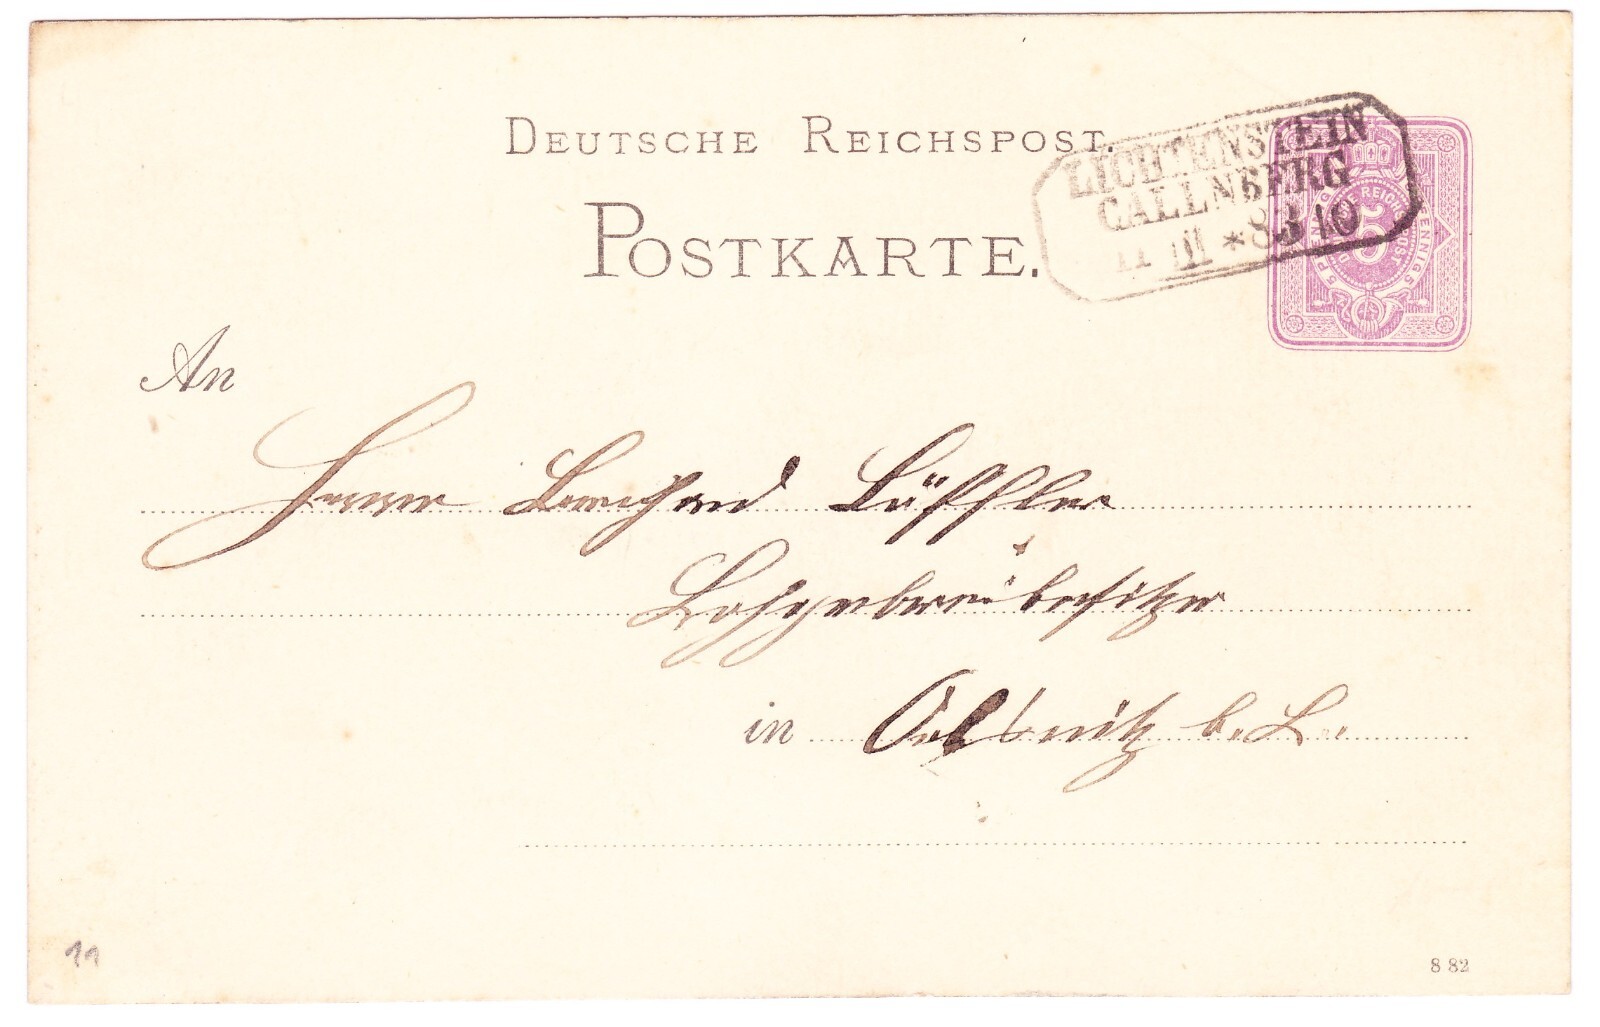 DEUTSCHE REICHSPOST.
POSTKARTE.
LICHTENSTEIN
CALLNBERG
11 III *83 10
5 PFENNIG 5
DEUTSCHE REICHSPOST
5
An
Herrn
Lohgerbereibesitzer
in Oelsnitz b. L.
11
8 82